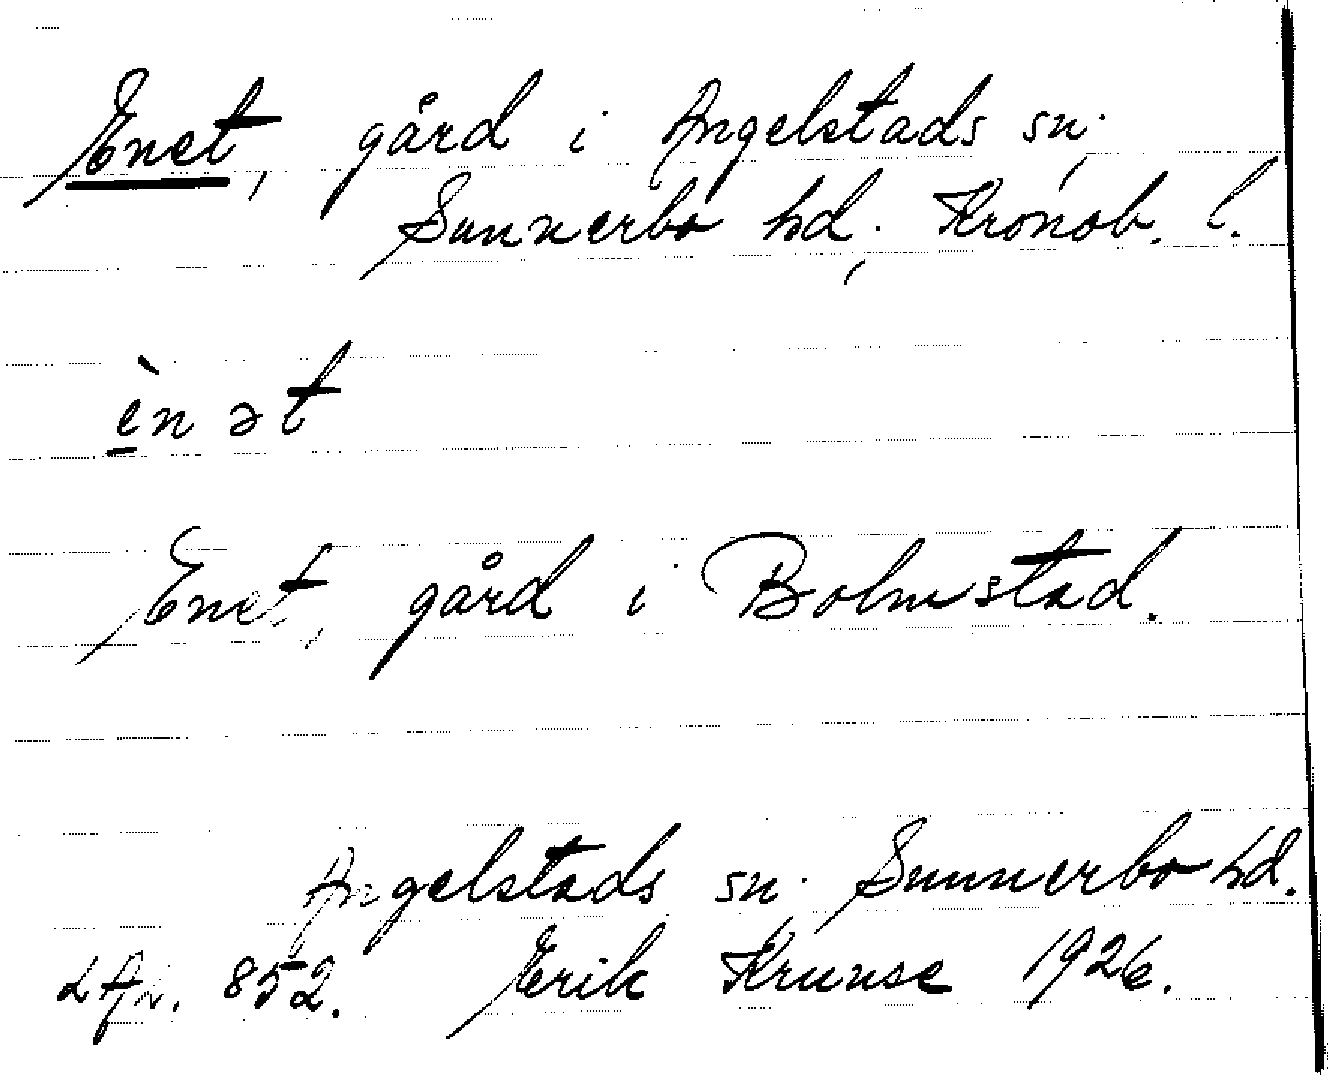 Enet, gård i Angelstads sn.,
Sunnerbo hd., Kronob. l.
èn ət
Enet, gård i Bolmstad.
Angelstads sn., Sunnerbo hd.
852. Erik Krunse 1926.